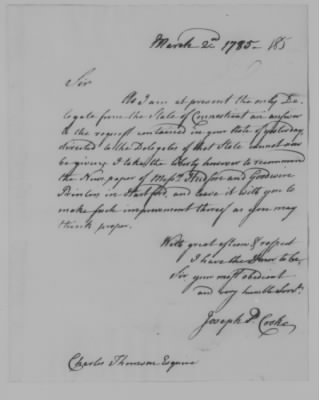 March 2d. 1785 185
Sir
As I am at present the only De-
legate from the State of Connecticut an answer
to the request contained in your Note of yesterday
directed to the Delegates of that State cannot now
be given; I take the liberty however to recommend
the News paper of Messrs. Hudson and Goodwin
Printers in Hartford, and leave it with you to
make such improvement thereof as you may
think proper.
With great esteem & respect
I have the honor to be,
Sir your most obedient
and very humble Servt.
Joseph P. Cooke
Charles Thomson Esquire